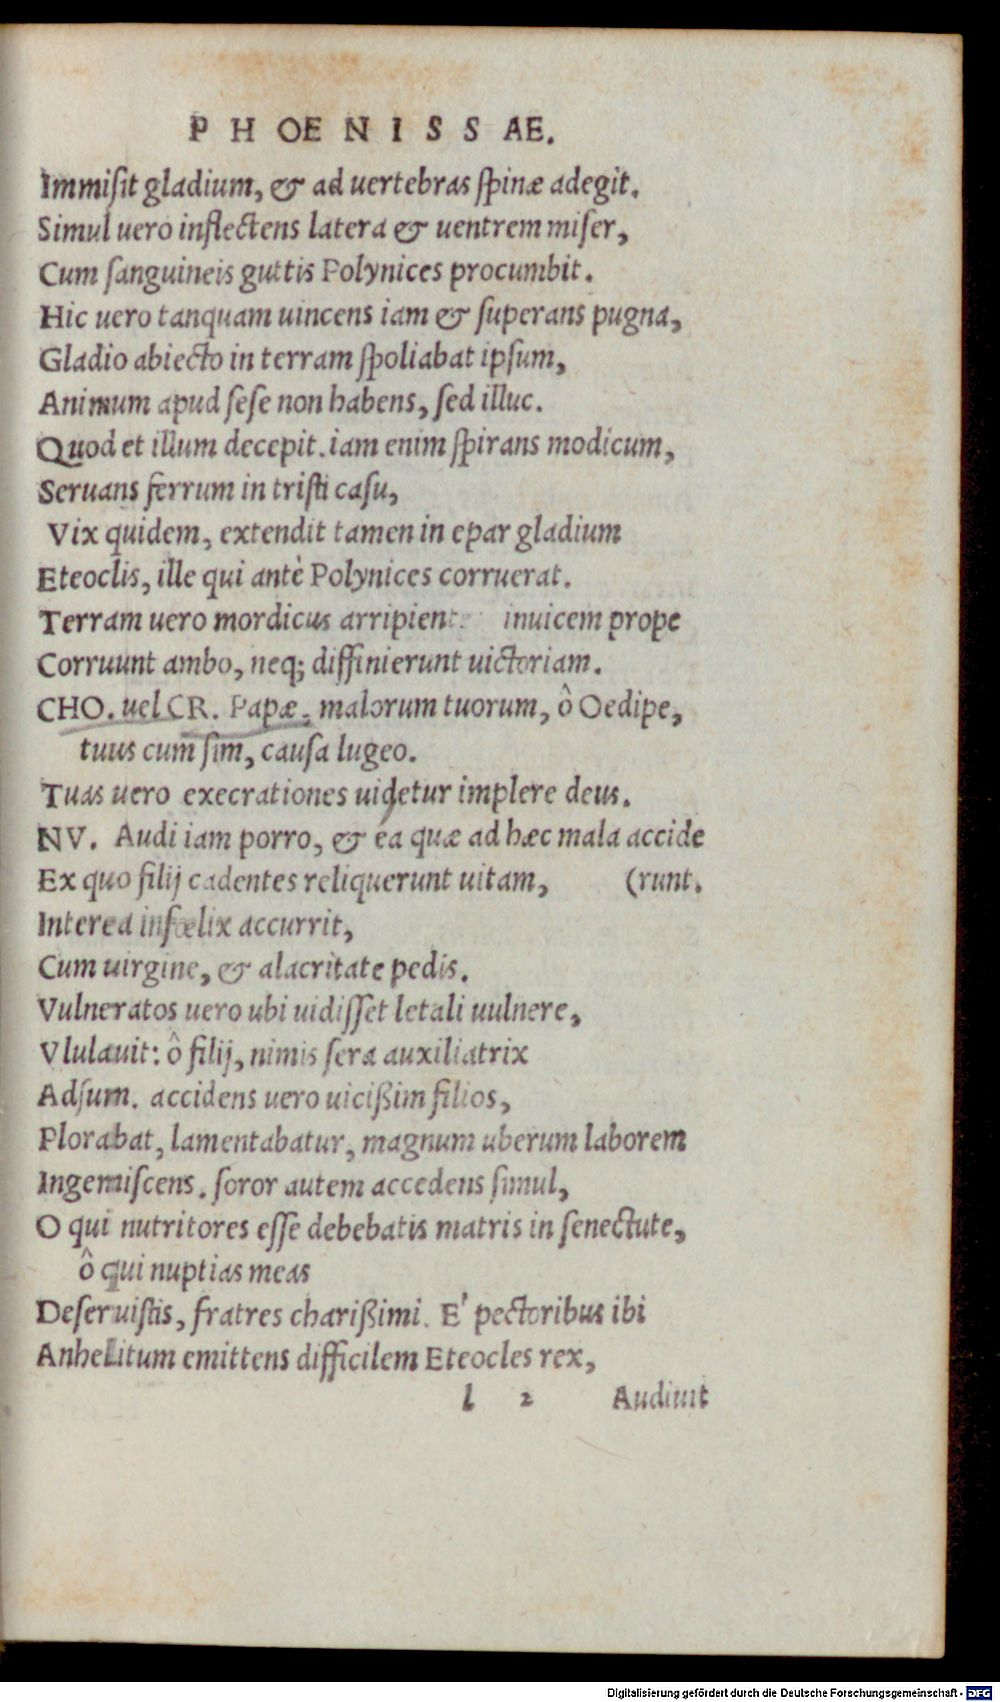 PHOENISSAE.
Immisit gladium, & ad uertebras spinæ adegit.
Simul uero inflectens latera & uentrem miser,
Cum sanguineis guttis Polynices procumbit.
Hic uero tanquam uincens iam & superans pugna,
Gladio abiecto in terram spoliabat ipsum,
Animum apud sese non habens, sed illuc.
Quod et illum decepit. iam enim spirans modicum,
Seruans ferrum in tristi casu,
Vix quidem, extendit tamen in epar gladium
Eteoclis, ille qui antè Polynices corruerat.
Terram uero mordicus arripient inuicem prope
Corruunt ambo, neq; diffinierunt uictoriam.
CHO. uel CR. Papæ. malorum tuorum, ô Oedipe,
tuus cum sim, causa lugeo.
Tuas uero execrationes uidetur implere deus.
NV. Audi iam porro, & ea quæ ad hæc mala accide
Ex quo filij cadentes reliquerunt uitam, (runt.
Interea infœlix accurrit,
Cum uirgine, & alacritate pedis.
Vulneratos uero ubi uidisset letali uulnere,
Vlulauit: ô filij, nimis sera auxiliatrix
Adsum. accidens uero uicißim filios,
Plorabat, lamentabatur, magnum uberum laborem
Ingemiscens. soror autem accedens simul,
O qui nutritores esse debebatis matris in senectute,
ô qui nuptias meas
Deseruistis, fratres charißimi. E' pectoribus ibi
Anhelitum emittens difficilem Eteocles rex,
l 2 Audiuit
Digitalisierung gefördert durch die Deutsche Forschungsgemeinschaft - DFG